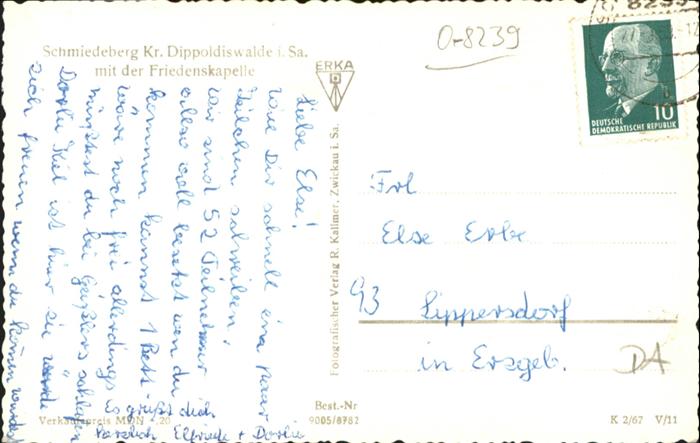 Schmiedeberg Kr. Dippoldiswalde i. Sa.
mit der Friedenskapelle
Liebe Else!
Will Dir schnell ein paar
Zeilchen schreiben.
Wir sind 52 Teilnehmer
also voll besetzt wen du
kommen kannst 1 Bett
wäre noch frei allerdings
müßtest du bei Gäßlers schlafen
Dorlu ist hier sie würde
sich freuen wenn du kommen würdest
Es grüßt dich
herzlich Elfriede + Dorlu
Verkaufspreis MDN -,20
ERKA
Fotografischer Verlag R. Kallmer, Zwickau i. Sa.
Best.-Nr
9005/8782
0-8239
8239
10
DEUTSCHE
DEMOKRATISCHE REPUBLIK
Frl
Else Erbe
93 Lippersdorf
in Erzgeb.
DA
K 2/67 V/11